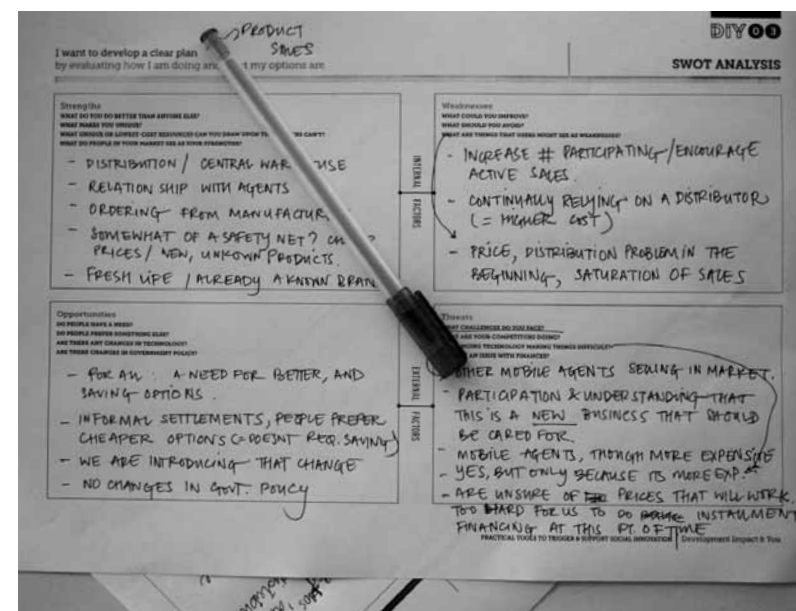 PRODUCT
SALES
DIY 03
I want to develop a clear plan
by evaluating how I am doing and my options are
SWOT ANALYSIS
Strengths
WHAT DO YOU DO BETTER THAN ANYONE ELSE?
WHAT MAKES YOU UNIQUE?
WHAT UNIQUE OR LOWEST-COST RESOURCES CAN YOU DRAW UPON CAN'T?
WHAT DO PEOPLE IN YOUR MARKET SEE AS YOUR STRENGTHS?
- DISTRIBUTION / CENTRAL WAR USE
- RELATION SHIP WITH AGENTS
- ORDERING FROM MANUFACTUR
- SOMEWHAT OF A SAFETY NET?
PRICES / NEW, UNKOWN PRODUCTS.
- FRESH LIFE / ALREADY A KNOWN BRAN
INTERNAL FACTORS
Weaknesses
WHAT COULD YOU IMPROVE?
WHAT SHOULD YOU AVOID?
WHAT ARE THINGS THAT USERS MIGHT SEE AS WEAKNESSES?
- INCREASE # PARTICIPATING/ENCOURAGE
ACTIVE SALES.
- CONTINUALLY RELYING ON A DISTRIBUTOR
(= HIGHER COST)
- PRICE, DISTRIBUTION PROBLEM IN THE
BEGINNING, SATURATION OF SALES
Opportunities
DO PEOPLE HAVE A NEED?
DO PEOPLE PREFER SOMETHING ELSE?
ARE THERE ANY CHANGES IN TECHNOLOGY?
ARE THERE CHANGES IN GOVERNMENT POLICY?
- FOR ALL: A NEED FOR BETTER, AND
SAVING OPTIONS.
- INFORMAL SETTLEMENTS, PEOPLE PREFER
CHEAPER OPTIONS (= DOESNT REQ. SAVING)
- WE ARE INTRODUCING THAT CHANGE
- NO CHANGES IN GOVT. POLICY
EXTERNAL FACTORS
Threats
WHAT CHALLENGES DO YOU FACE?
WHAT ARE YOUR COMPETITORS DOING?
TECHNOLOGY MAKING THINGS DIFFICULT?
AN ISSUE WITH FINANCES?
OTHER MOBILE AGENTS SELLING IN MARKET.
- PARTICIPATION & UNDERSTANDING THAT
THIS IS A NEW BUSINESS THAT SHOULD
BE CARED FOR.
- MOBILE AGENTS, THOUGH MORE EXPENSIVE
- YES, BUT ONLY BECAUSE ITS MORE EXP.
- ARE UNSURE OF PRICES THAT WILL WORK.
TOO HARD FOR US TO DO INSTALLMENT
FINANCING AT THIS PT. OF TIME
PRACTICAL TOOLS TO TRIGGER & SUPPORT SOCIAL INNOVATION | Development Impact & You